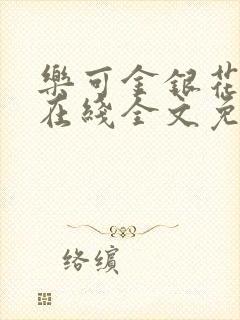 樂可金銀花
在綫全文免
络繽